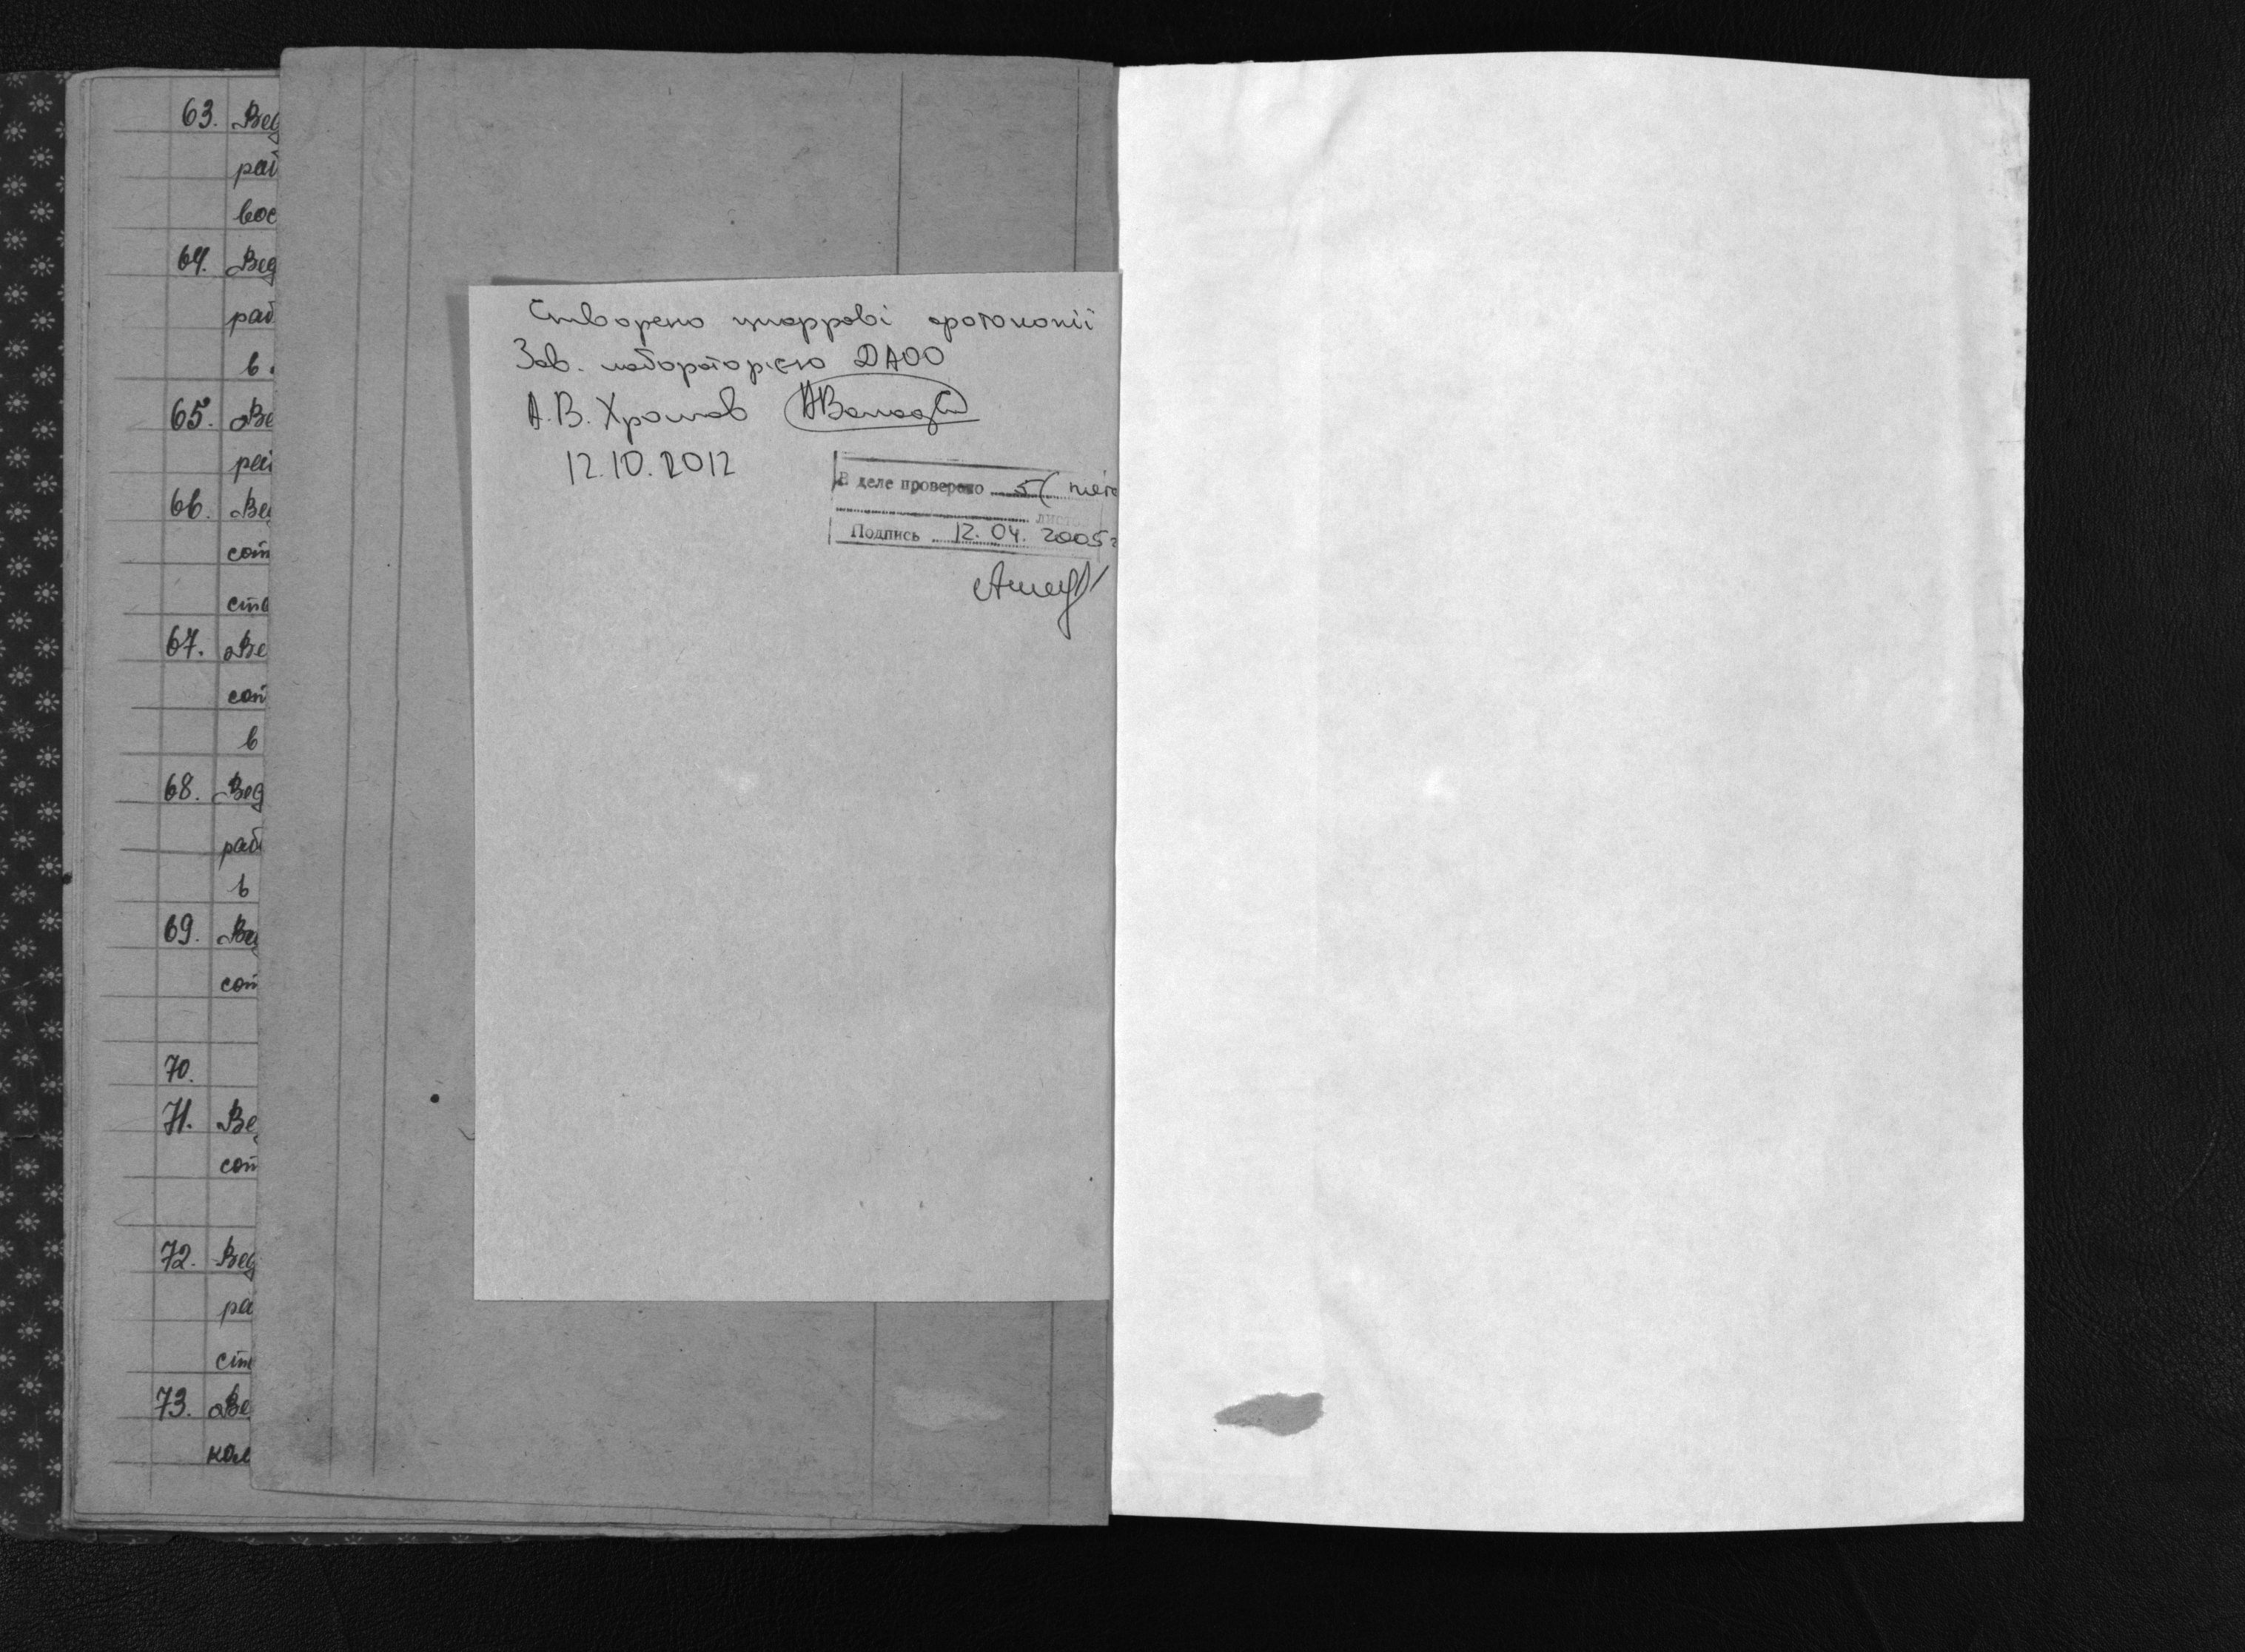 63. Вед
рай
вос
64. Вед
раб
в
65. Ве
рай
66. Вед
сот
ств
67. Ве
сот
в
68. Вед
раб
в
69. Вед
сот
70.
71. Вед
сот
72. Вед
ра
ств
73. Ве
кол
Створено цифрові фотокопії
Зав. лабораторією ДАОО
А.В. Хромов
12.10.2012
В деле проверено 5 (пять
листов
Подпись 12.04.2005г